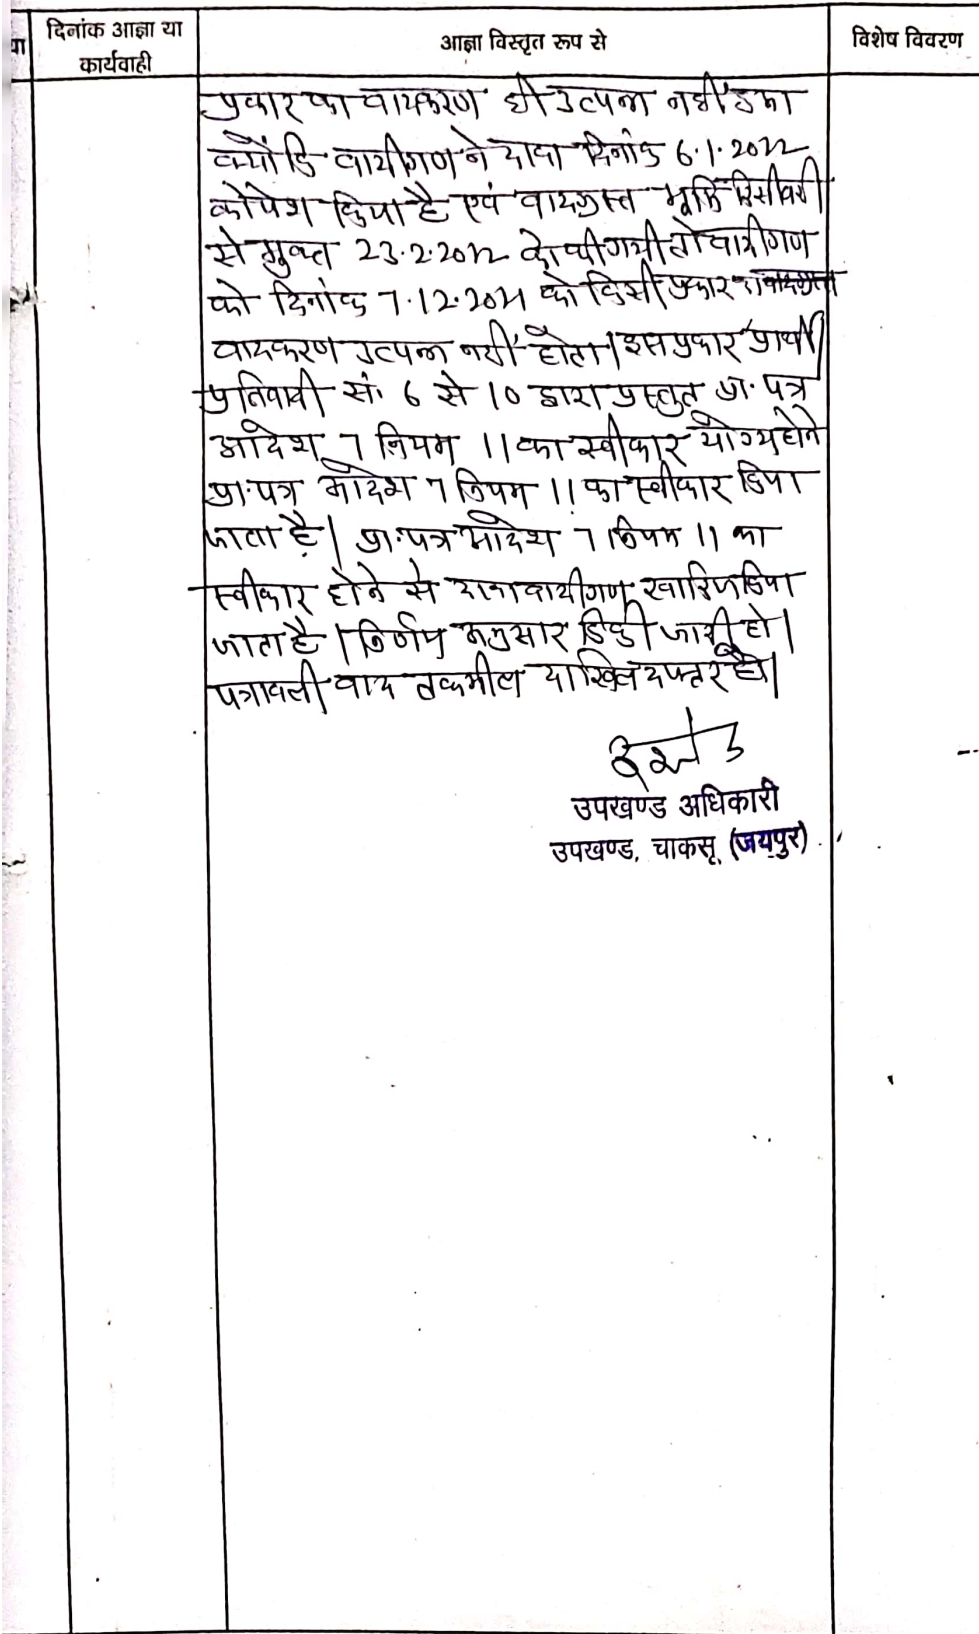 या
दिनांक आज्ञा या
कार्यवाही
आज्ञा विस्तृत रूप से
विशेष विवरण
प्रकार का वादकरण ही उत्पन्न नहीं हुआ
क्योंकि वादीगण ने दावा दिनांक 6.1.2022
को पेश किया है एवं वादग्रस्त भूमि
से मुक्त 23.2.2022 को की गयी तो वादीगण
को दिनांक 7.12.2021 को किसी प्रकार का
वादकरण उत्पन्न नहीं होता। इस प्रकार प्रार्थी
प्रतिवादी सं. 6 से 10 द्वारा प्रस्तुत प्रा. पत्र
आदेश 7 नियम 11 का स्वीकार योग्य होने
प्रा. पत्र आदेश 7 नियम 11 का स्वीकार किया
जाता है। प्रा. पत्र आदेश 7 नियम 11 का
स्वीकार होने से दावा वादीगण खारिज किया
जाता है। निर्णय अनुसार डिक्री जारी हो।
पत्रावली बाद तकमील दाखिल दफ्तर हो।
उपखण्ड अधिकारी
उपखण्ड, चाकसू (जयपुर)